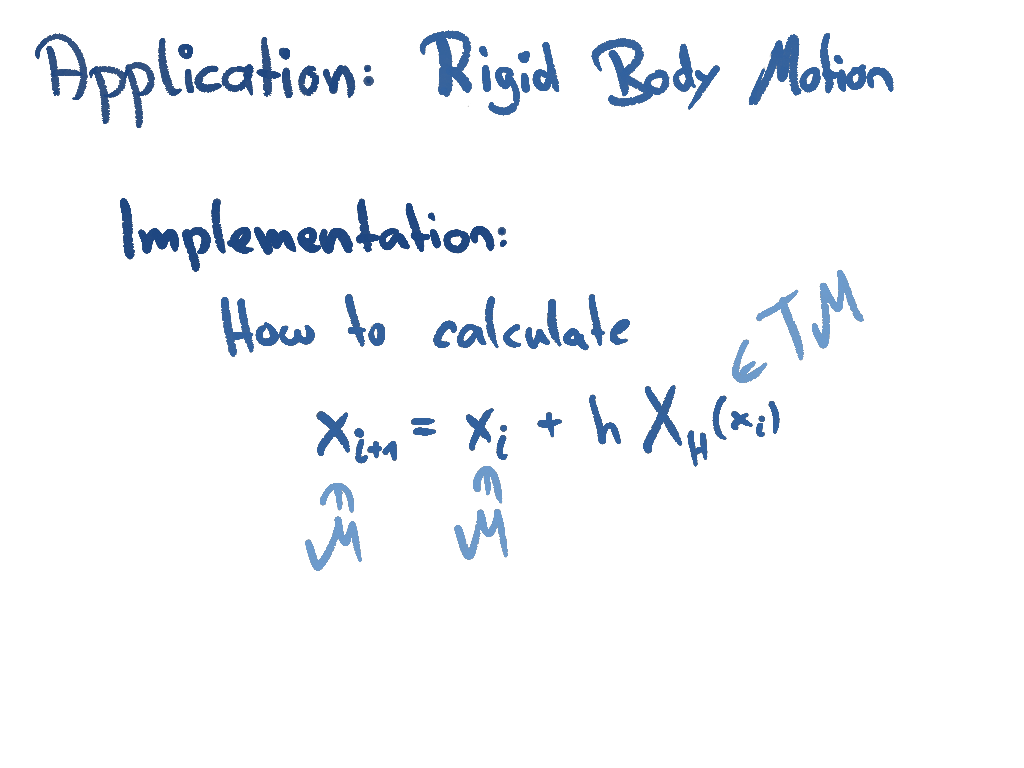 Application: Rigid Body Motion
Implementation:
How to calculate
∈ TM
x_{i+1} = x_i + h X_H(x_i)
∈ ∈
M M